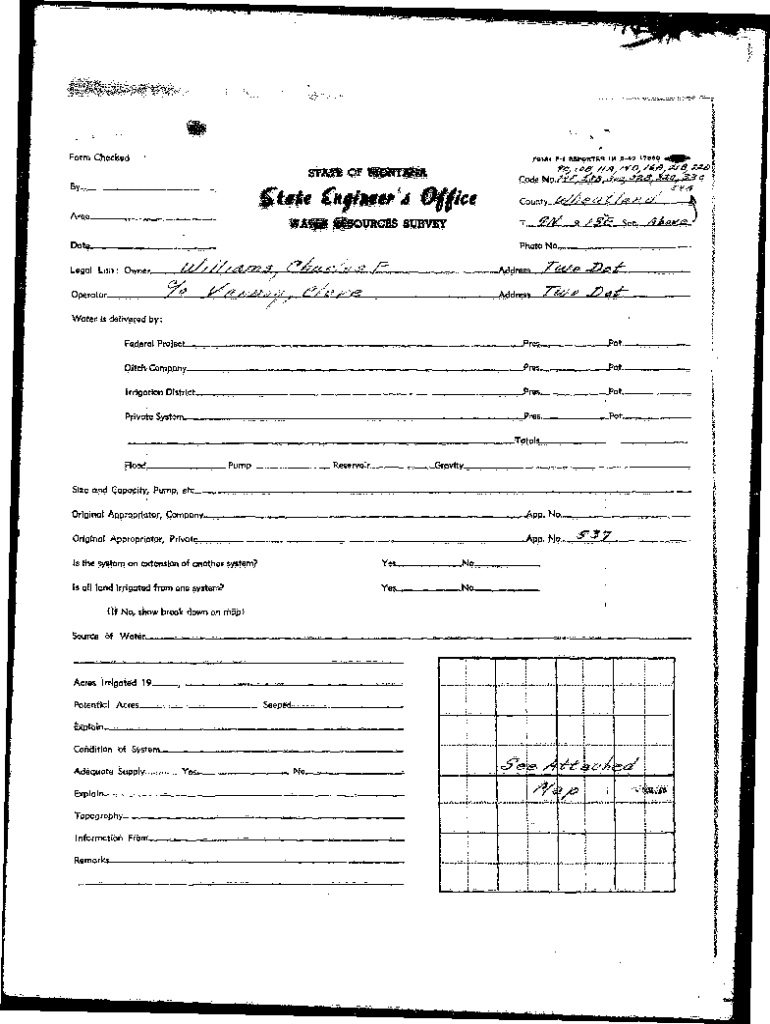 Form Checked
STATE OF MONTANA
9D, 10B, 11A, 14D, 16A, 21B, 22D
Code No.
By
State Engineer's Office
County Wheatland
Area
WATER RESOURCES SURVEY
T. 9N R 15E See Above
Date
Photo No.
Legal Land Owner Williams, Charles F Address Two Dot
Operator c/o Address Two Dot
Water is delivered by:
Federal Project Pres. Pot.
Ditch Company Pres. Pot.
Irrigation District Pres. Pot.
Private System Pres. Pot.
Totals
Flood Pump Reservoir Gravity
Size and Capacity, Pump, etc.
Original Appropriator, Company App. No.
Original Appropriator, Private App. No. 537
Is the system an extension of another system? Yes No
Is all land irrigated from one system? Yes No
(If No, show break down on map)
Source of Water
Acres Irrigated 19
Potential Acres Seeped
Explain
Condition of System
See Attached
Adequate Supply Yes No
Map
Explain
Topography
Information From
Remarks